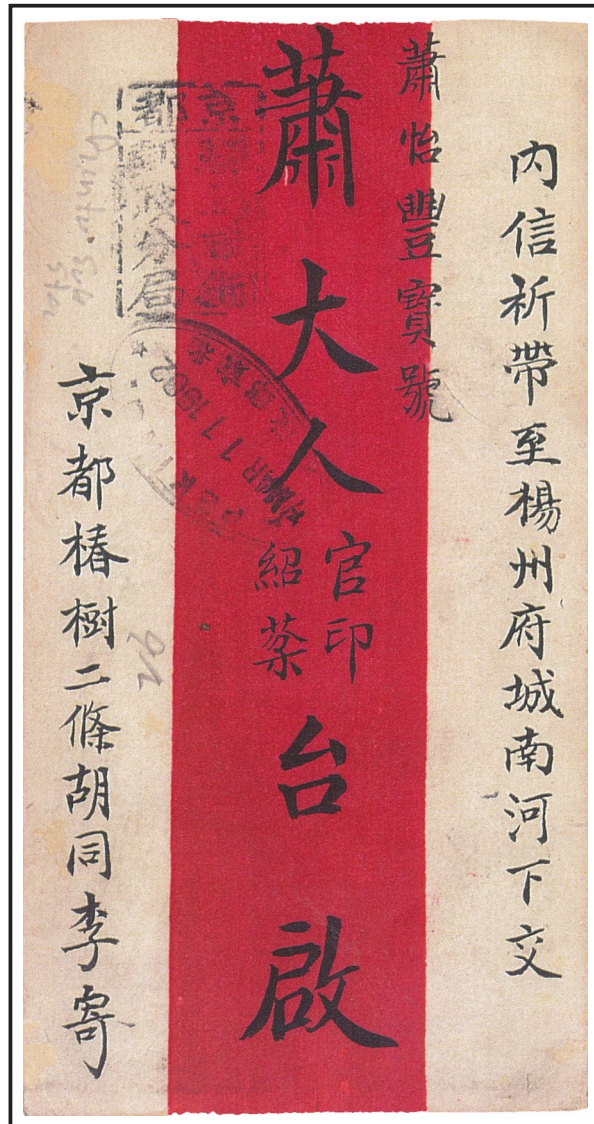 内信祈帶至楊州府城南河下交
蕭怡豐寳號
蕭大人官印紹棻台啟
京都椿樹二條胡同李寄
京都
分局
MAR 11 1902